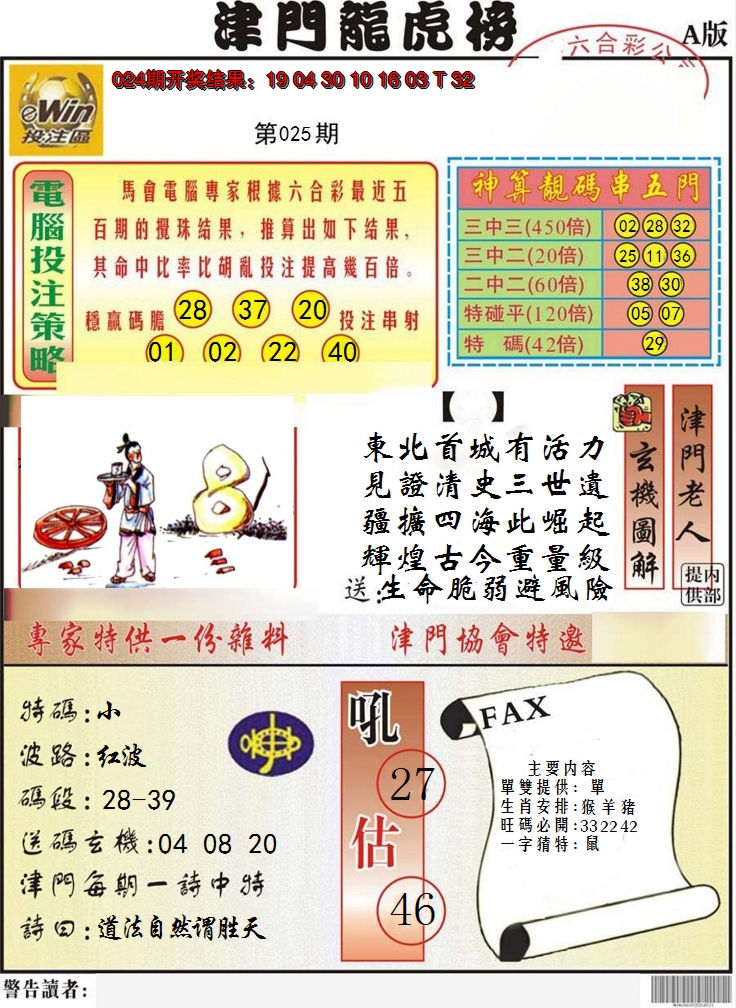 津門龍虎榜
A版
六合彩公
eWin
投注區
024期开奖结果：19 04 30 10 16 03 T 32
第025期
電腦投注策略
馬會電腦專家根據六合彩最近五
百期的攪珠结果，推算出如下结果，
其命中比率比胡亂投注提高幾百倍。
穩贏碼膽 28 37 20 投注串射
01 02 22 40
神算靚碼串五門
三中三(450倍) 02 28 32
三中二(20倍) 25 11 36
二中二(60倍) 38 30
特碰平(120倍) 05 07
特 碼(42倍) 29
【 】
東北首城有活力
見證清史三世遺
疆擴四海此崛起
輝煌古今重量級
送:生命脆弱避風險
玄機圖解
津門老人
内部提供
專家特供一份雜料
津門協會特邀
特碼:小
波路:红波
碼段:28-39
送碼玄機:04 08 20
津門每期一詩中特
詩曰:道法自然谓胜天
吼
27
估
46
FAX
主要内容
單雙提供: 單
生肖安排:猴羊豬
旺碼必開:33 22 42
一字猜特: 鼠
警告讀者: